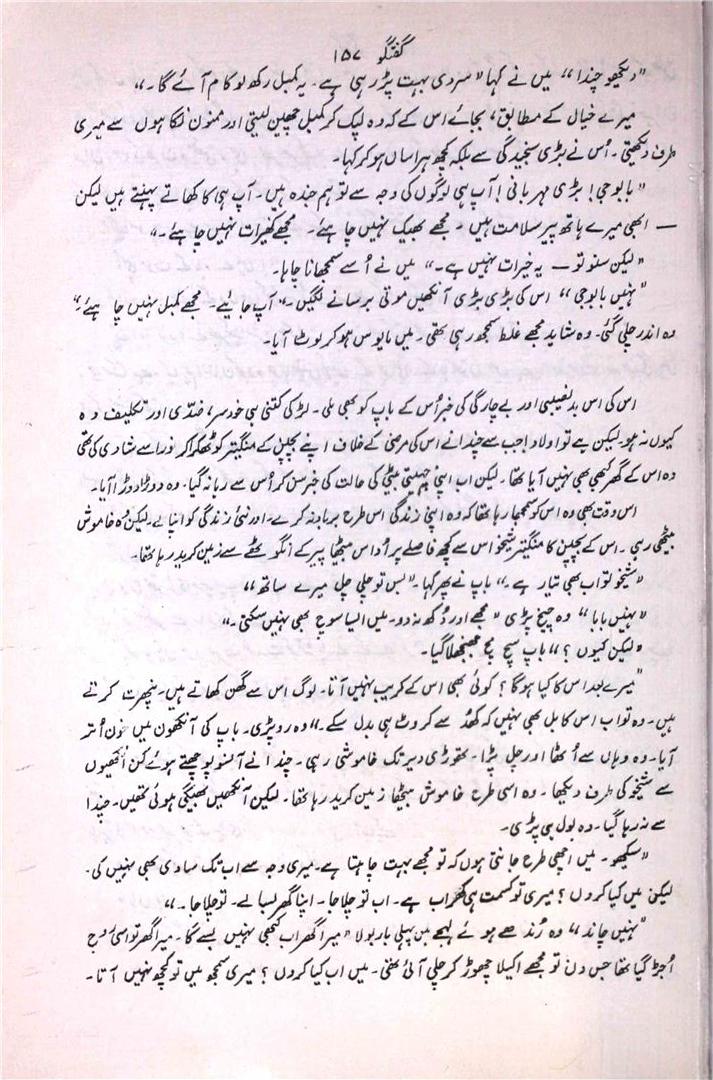 گفتگو ۱۵۷
"دیکھو چندا" میں نے کہا "سردی بہت پڑ رہی ہے۔ یہ کمبل رکھ لو کام آئے گا۔"
میرے خیال کے مطابق، بجائے اس کے کہ وہ لپک کر کمبل چھین لیتی اور ممنون نگاہوں سے میری
طرف دیکھتی۔ اُس نے بڑی سنجیدگی سے بلکہ کچھ ہراساں ہو کر کہا۔
"بابوجی! بڑی مہربانی! آپ ہی لوگوں کی وجہ سے تو ہم جندہ ہیں۔ آپ ہی کا کھاتے پہنتے ہیں لیکن
— ابھی میرے ہاتھ پیر سلامت ہیں۔ مجھے بھیک نہیں چاہئے۔ مجھے کھیرات نہیں چاہئے۔"
"لیکن سنو تو — یہ خیرات نہیں ہے۔" میں نے اُسے سمجھانا چاہا۔
"نہیں بابوجی" اس کی بڑی بڑی آنکھیں موتی برسانے لگیں۔ "آپ جائیے۔ مجھے کمبل نہیں چاہئے۔"
وہ اندر چلی گئی۔ وہ شاید مجھے غلط سمجھ رہی تھی۔ میں مایوس ہو کر لوٹ آیا۔
اس کی اس بدنصیبی اور بے چارگی کی خبر اُس کے باپ کو بھی ملی۔ لڑکی کتنی ہی خودسر، ضدّی اور تکلیف دہ
کیوں نہ ہو لیکن ہے تو اولاد! جب سے چندا نے اس کی مرضی کے خلاف اپنے بچپن کے منگیتر کو ٹھکرا کر نوراسے شادی کی تھی
وہ اس کے گھر کبھی بھی نہیں آیا تھا۔ لیکن اب اپنی چہیتی بیٹی کی حالت کی خبر سن کر اُس سے رہا نہ گیا۔ وہ دوڑا دوڑا آیا۔
اس وقت بھی وہ اس کو سمجھا رہا تھا کہ وہ اپنی زندگی اس طرح برباد نہ کرے۔ اور نئی زندگی کو اپنا لے۔ لیکن وہ خاموش
بیٹھی رہی۔ اس کے بچپن کا منگیتر شیخو اس سے کچھ فاصلے پر اُداس بیٹھا پیر کے انگوٹھے سے زمین کرید رہا تھا۔
"شیخو تو اب بھی تیار ہے۔" باپ نے پھر کہا۔ "بس تو چلی چل میرے ساتھ"
"نہیں بابا" وہ چیخ پڑی "مجھے اور دُکھ نہ دو۔ میں ایسا سوچ بھی نہیں سکتی۔"
"لیکن کیوں؟" باپ سچ مچ جھنجھلا گیا۔
"میرے بعد اس کا کیا ہوگا؟ کوئی بھی اس کے کریب نہیں آتا۔ لوگ اس سے گھن کھاتے ہیں۔ نپھرت کرتے
ہیں۔ وہ تو اب اس کابل بھی نہیں کہ کھُد سے کروٹ ہی بدل سکے۔" وہ رو پڑی۔ باپ کی آنکھوں میں خون اُتر
آیا۔ وہ وہاں سے اُٹھا اور چل پڑا۔ تھوڑی دیر تک خاموشی رہی۔ چندا نے آنسو پوچھتے ہوئے کن انکھیوں
سے شیخو کی طرف دیکھا۔ وہ اسی طرح خاموش بیٹھا زمین کرید رہا تھا۔ لیکن آنکھیں بھیگی ہوئی تھیں۔ چندا
سے نہ رہا گیا۔ وہ بول ہی پڑی۔
"سیکھو۔ میں اچھی طرح جانتی ہوں کہ تو مجھے بہت چاہتا ہے۔ میری وجہ سے اب تک سادی بھی نہیں کی۔
لیکن میں کیا کروں؟ میری تو کسمت ہی کھراب ہے۔ اب تو چلا جا۔ اپنا گھر بسا لے۔ تو چلا جا۔"
"نہیں چاند" وہ رُندھے ہوئے لہجے میں پہلی بار بولا "میرا گھر اب کبھی نہیں بسے گا۔ میرا گھر تو اسی روج
اُجڑ گیا تھا جس دن تو مجھے اکیلا چھوڑ کر چلی آئی تھی۔ میں اب کیا کروں؟ میری سمجھ میں تو کچھ نہیں آتا۔